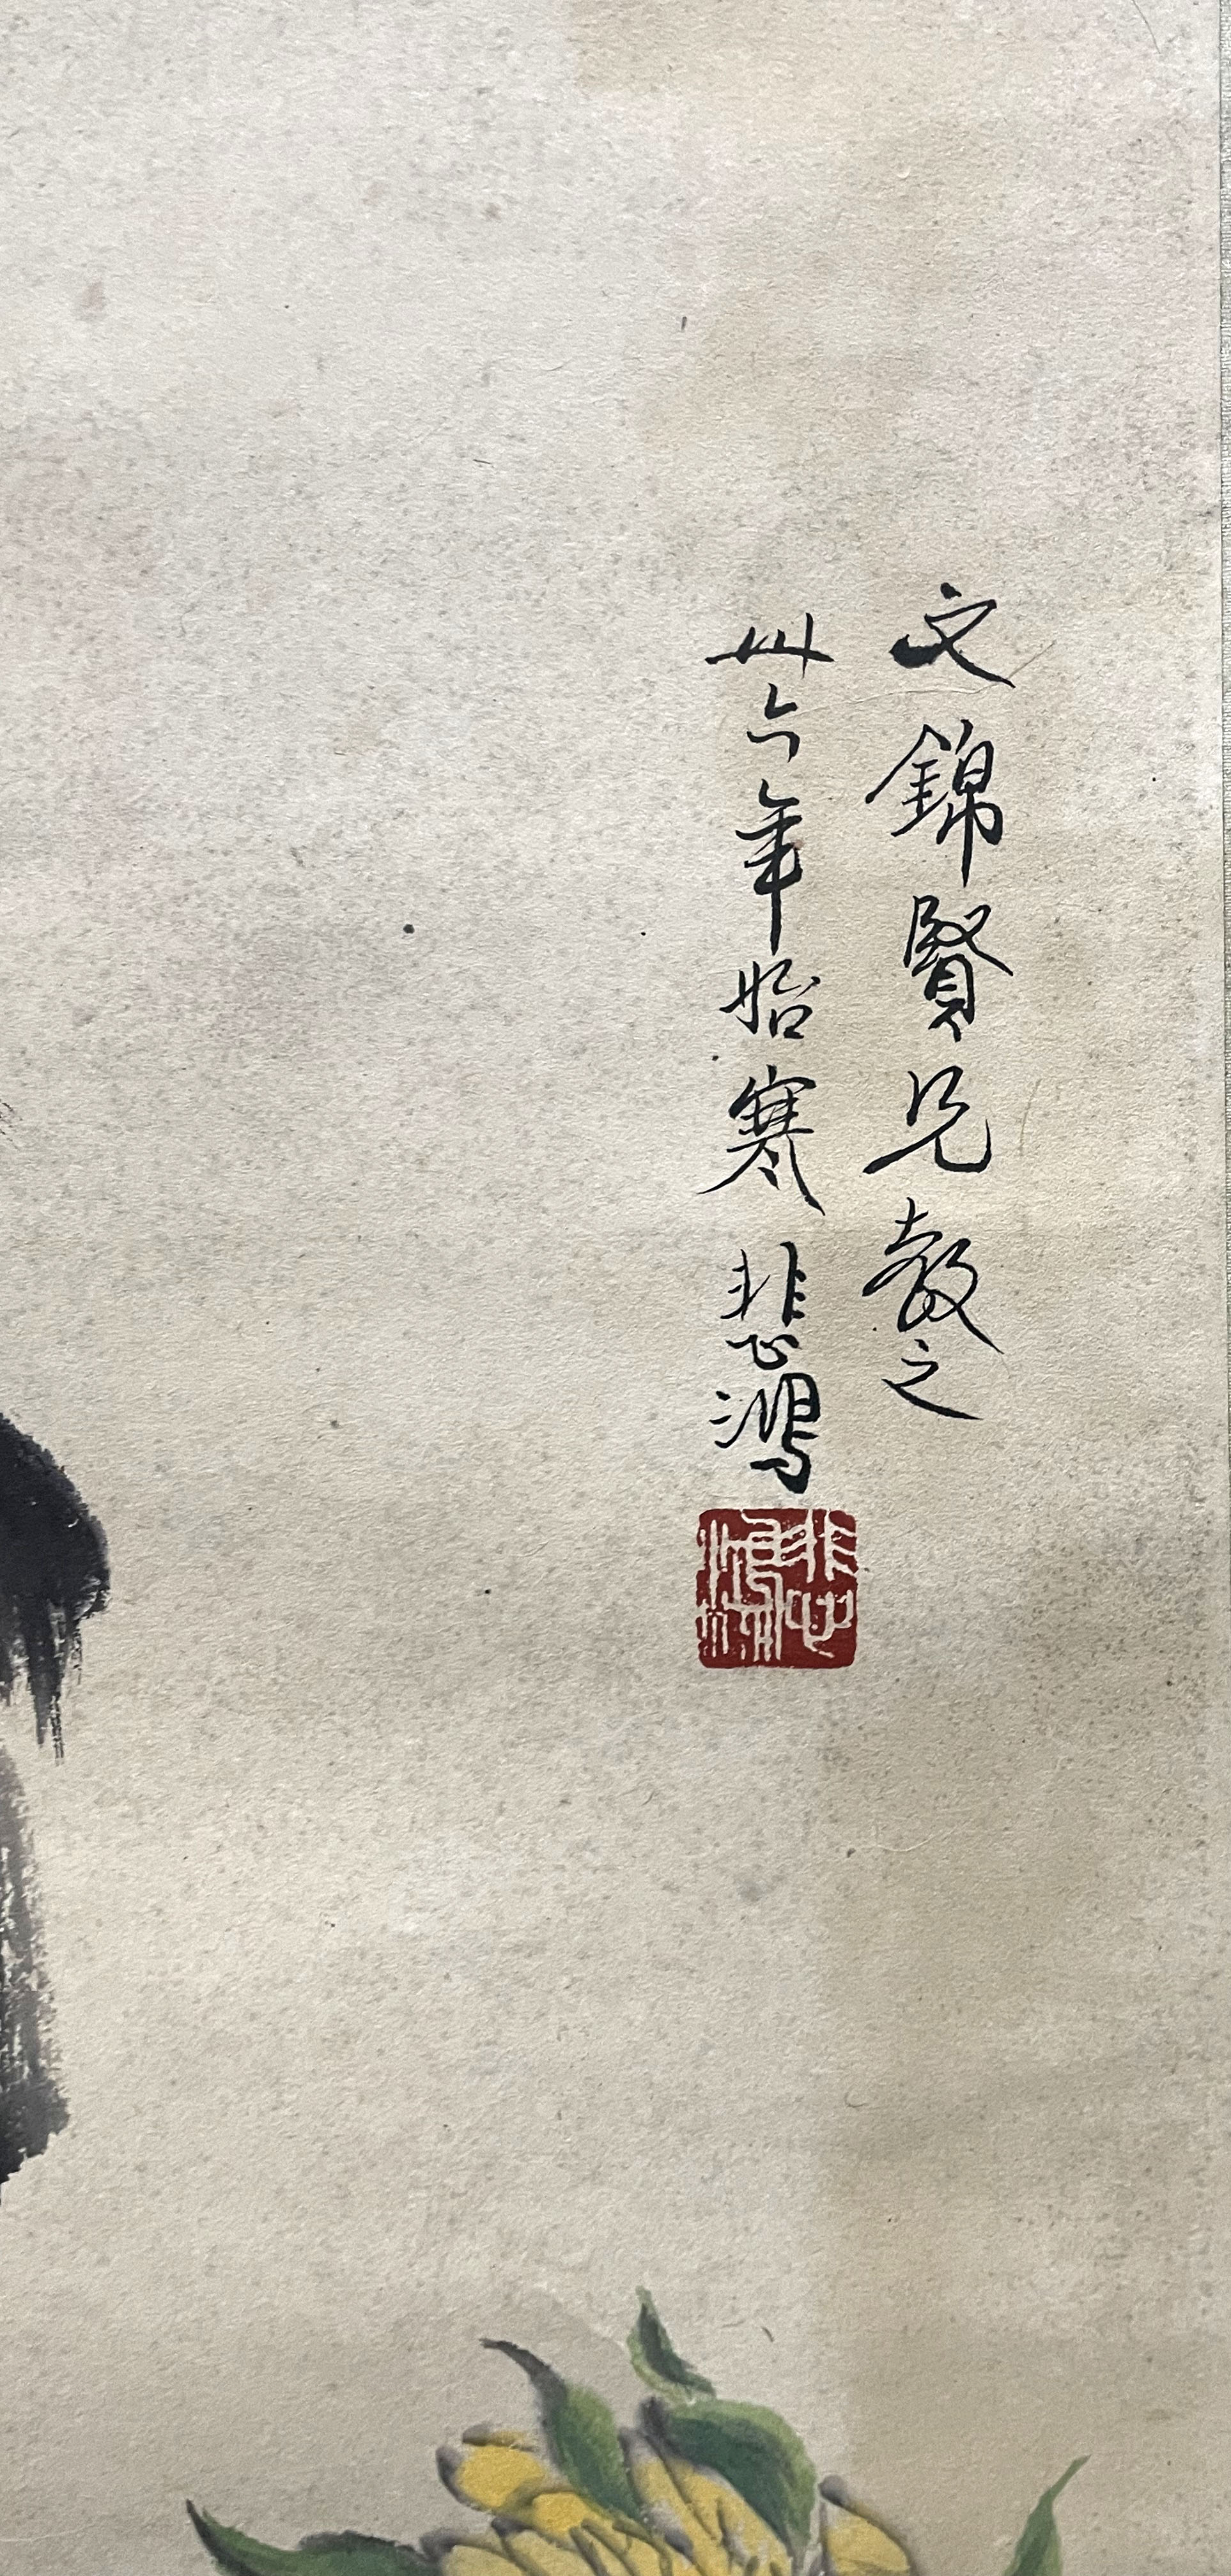 文錦賢兄教之
卅六年始寒 悲鴻
悲鴻